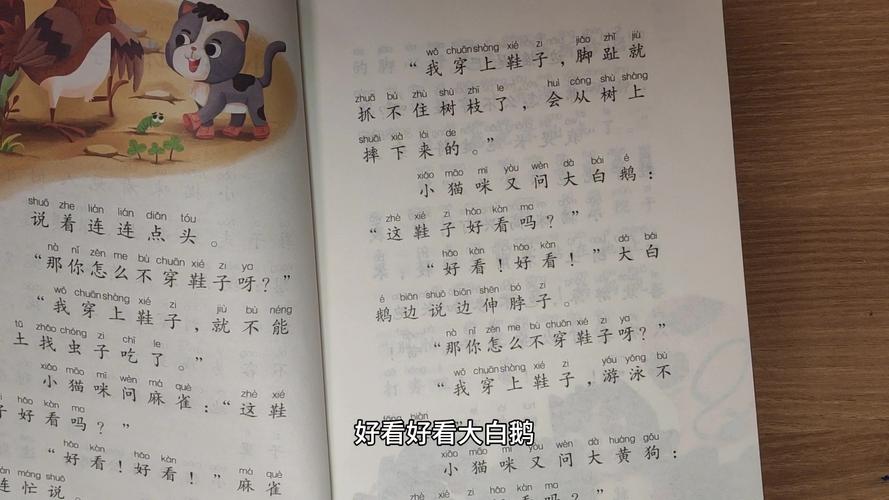 shuō zhe lián lián diǎn tóu
说着连连点头。
nà nǐ zěn me bù chuān xié zi ya
“那你怎么不穿鞋子呀？”
wǒ chuān shàng xié zi jiù bù néng
“我穿上鞋子，就不能
tǔ zhǎo chóng zi chī le
土找虫子吃了。”
xiǎo māo mī wèn má què zhè xié
小猫咪问麻雀：“这鞋
子好看吗？”
hǎo kàn hǎo kàn má què
“好看！好看！”麻雀
连忙说
wǒ chuān shàng xié zi jiǎo zhǐ jiù
“我穿上鞋子，脚趾就
zhuā bú zhù shù zhī le huì cóng shù shàng
抓不住树枝了，会从树上
shuāi xià lái de
摔下来的。”
xiǎo māo mī yòu wèn dà bái é
小猫咪又问大白鹅：
zhè xié zi hǎo kàn ma
“这鞋子好看吗？”
hǎo kàn hǎo kàn dà bái
“好看！好看！”大白
é biān shuō biān shēn bó zi
鹅边说边伸脖子。
nà nǐ zěn me bù chuān xié zi ya
“那你怎么不穿鞋子呀？”
wǒ chuān shàng xié zi yóu yǒng bù
“我穿上鞋子，游泳不
好看好看大白鹅
xiǎo māo mī yòu wèn dà huáng gǒu
小猫咪又问大黄狗：
zhè xié zi hǎo kàn ma